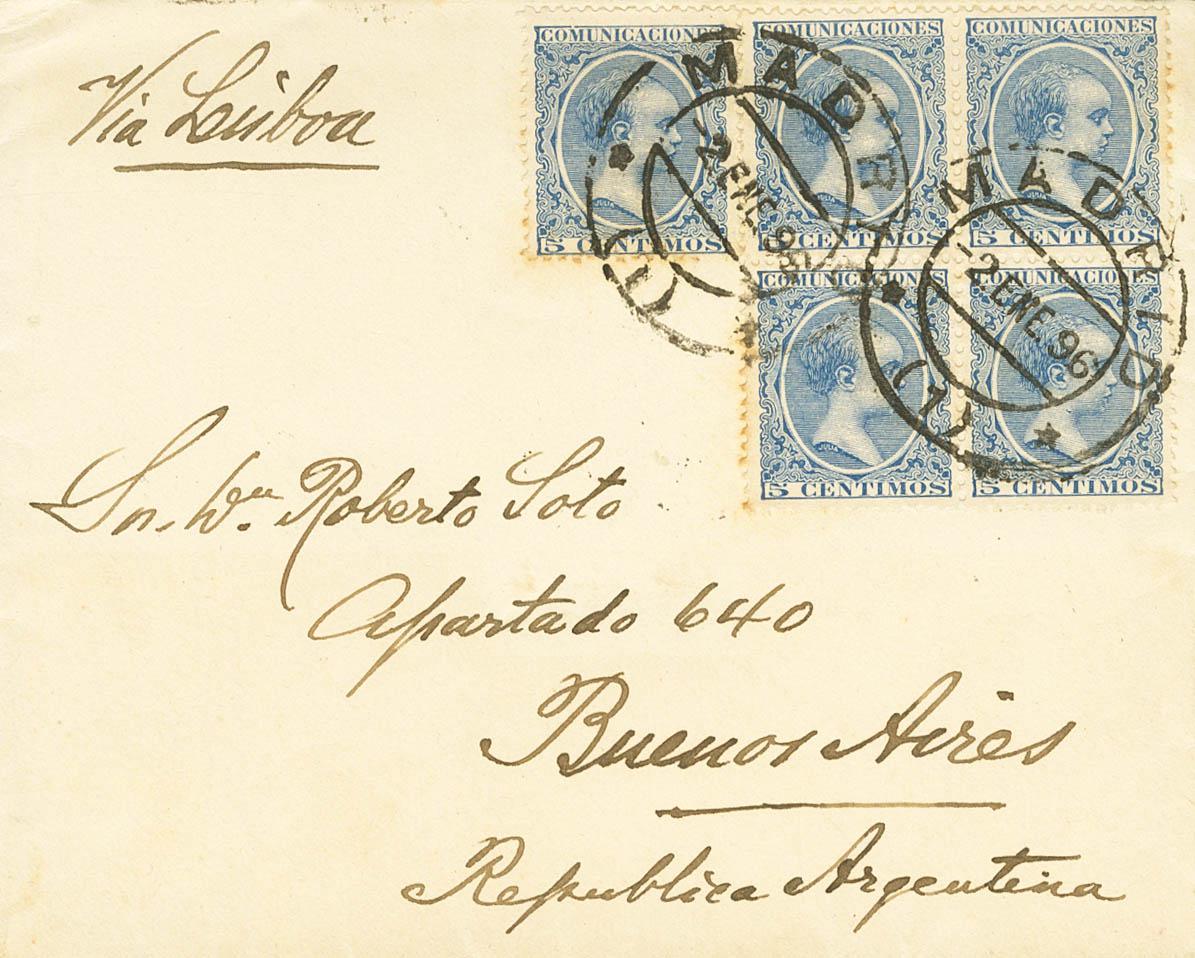 Via Lisboa
COMUNICACIONES COMUNICACIONES COMUNICACIONES
5 CENTIMOS 5 CENTIMOS 5 CENTIMOS
COMUNICACIONES COMUNICACIONES
5 CENTIMOS 5 CENTIMOS
MADRID
2 ENE. 96
(1)
MADRID
2 ENE. 96
(1)
JULIA
JULIA
JULIA
JULIA
JULIA
Sor. Roberto Soto
Apartado 640
Buenos Aires
Republica Argentina